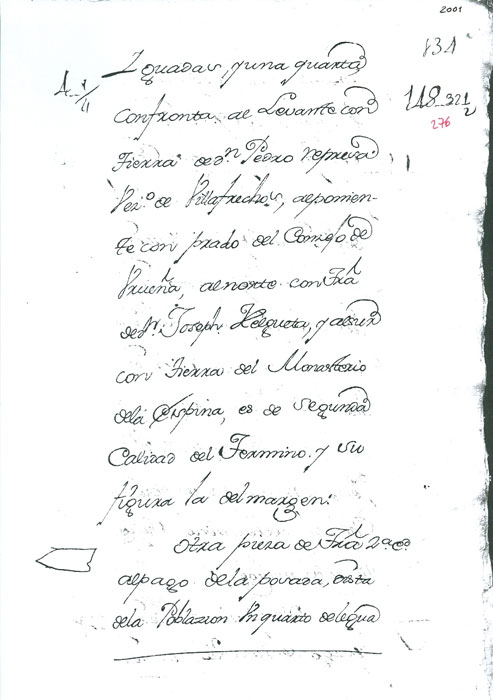 2001
131
148 321
276
4 1/4
Yguadas, y una quarta
confronta al Levante con
tierra de dn Pedro
Vezo de Villafrechos, al ponien-
te con prado del Conzejo de
Vrueña, al norte con tra
de dn Joseph Helgueta, y al sur
con tierra del Monasterio
dela Espina, es de segunda
Calidad del Termino. y su
figura la del margen:
Otra pieza de Tra 2a cd
alpago dela povada, dista
dela Poblazion Vn quarto delegua